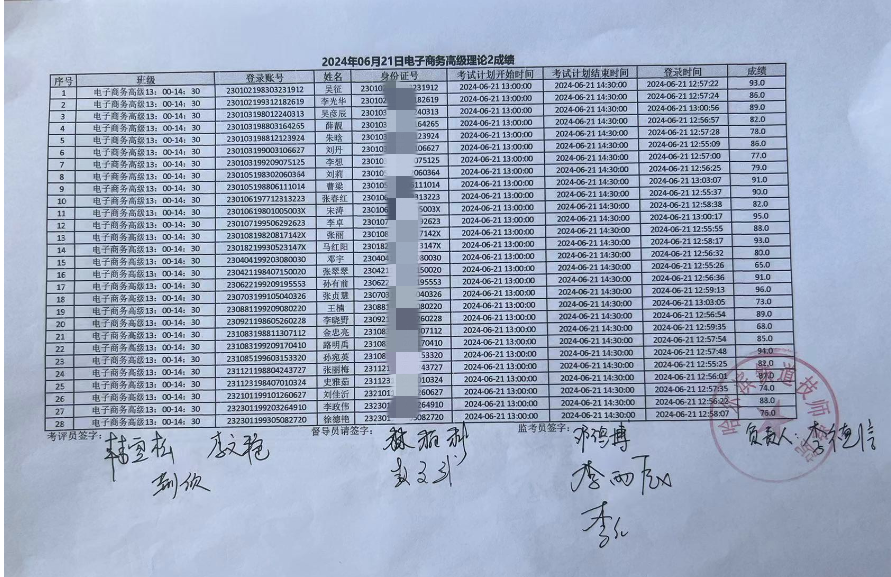 2024年06月21日电子商务高级理论2成绩
序号 班级 登录账号 姓名 身份证号 考试计划开始时间 考试计划结束时间 登录时间 成绩
1 电子商务高级13：00-14：30 230102198303231912 吴征 230102 231912 2024-06-21 13:00:00 2024-06-21 14:30:00 2024-06-21 12:57:22 93.0
2 电子商务高级13：00-14：30 230102199312182619 李光华 23010 82619 2024-06-21 13:00:00 2024-06-21 14:30:00 2024-06-21 12:57:24 86.0
3 电子商务高级13：00-14：30 230103198012240313 吴彦辰 23010 40313 2024-06-21 13:00:00 2024-06-21 14:30:00 2024-06-21 13:00:56 89.0
4 电子商务高级13：00-14：30 230103198803164265 薛靓 23010 64265 2024-06-21 13:00:00 2024-06-21 14:30:00 2024-06-21 12:56:57 82.0
5 电子商务高级13：00-14：30 230103198812123924 朱晗 23010 23924 2024-06-21 13:00:00 2024-06-21 14:30:00 2024-06-21 12:57:28 78.0
6 电子商务高级13：00-14：30 230103199003106627 刘丹 23010 06627 2024-06-21 13:00:00 2024-06-21 14:30:00 2024-06-21 12:55:09 86.0
7 电子商务高级13：00-14：30 230103199209075125 李想 23010 075125 2024-06-21 13:00:00 2024-06-21 14:30:00 2024-06-21 12:57:00 77.0
8 电子商务高级13：00-14：30 230105198302060364 刘莉 23010 060364 2024-06-21 13:00:00 2024-06-21 14:30:00 2024-06-21 12:56:25 79.0
9 电子商务高级13：00-14：30 230105198806111014 曹梁 23010 111014 2024-06-21 13:00:00 2024-06-21 14:30:00 2024-06-21 13:03:07 91.0
10 电子商务高级13：00-14：30 230106197712313223 张春红 23010 313223 2024-06-21 13:00:00 2024-06-21 14:30:00 2024-06-21 12:55:37 90.0
11 电子商务高级13：00-14：30 23010619801005003X 宋涛 23010 5003X 2024-06-21 13:00:00 2024-06-21 14:30:00 2024-06-21 12:58:38 82.0
12 电子商务高级13：00-14：30 230107199506292623 李卓 23010 92623 2024-06-21 13:00:00 2024-06-21 14:30:00 2024-06-21 13:00:17 95.0
13 电子商务高级13：00-14：30 23010819820817142X 张丽 23010 7142X 2024-06-21 13:00:00 2024-06-21 14:30:00 2024-06-21 12:55:55 88.0
14 电子商务高级13：00-14：30 23018219930523147X 马红阳 23018 3147X 2024-06-21 13:00:00 2024-06-21 14:30:00 2024-06-21 12:58:17 93.0
15 电子商务高级13：00-14：30 230404199203080030 邓宇 23040 80030 2024-06-21 13:00:00 2024-06-21 14:30:00 2024-06-21 12:56:32 80.0
16 电子商务高级13：00-14：30 230421198407150020 张翠翠 23042 50020 2024-06-21 13:00:00 2024-06-21 14:30:00 2024-06-21 12:55:26 65.0
17 电子商务高级13：00-14：30 230622199209195553 孙有前 23062 95553 2024-06-21 13:00:00 2024-06-21 14:30:00 2024-06-21 12:56:36 91.0
18 电子商务高级13：00-14：30 230703199105040326 张贞慧 23070 40326 2024-06-21 13:00:00 2024-06-21 14:30:00 2024-06-21 12:59:13 96.0
19 电子商务高级13：00-14：30 230881199209080220 王楠 23088 80220 2024-06-21 13:00:00 2024-06-21 14:30:00 2024-06-21 13:03:05 73.0
20 电子商务高级13：00-14：30 230921198605260228 李晓野 23092 60228 2024-06-21 13:00:00 2024-06-21 14:30:00 2024-06-21 12:56:54 89.0
21 电子商务高级13：00-14：30 231083198811307112 金忠亮 23108 07112 2024-06-21 13:00:00 2024-06-21 14:30:00 2024-06-21 12:59:35 68.0
22 电子商务高级13：00-14：30 231083199209170410 路明禹 23108 70410 2024-06-21 13:00:00 2024-06-21 14:30:00 2024-06-21 12:57:54 85.0
23 电子商务高级13：00-14：30 231085199603153320 孙苑英 23108 53320 2024-06-21 13:00:00 2024-06-21 14:30:00 2024-06-21 12:57:48
24 电子商务高级13：00-14：30 231121198804243727 张丽梅 23112 43727 2024-06-21 13:00:00 2024-06-21 14:30:00 2024-06-21 12:55:25 82.0
25 电子商务高级13：00-14：30 231123198407010324 史雅茹 23112 10324 2024-06-21 13:00:00 2024-06-21 14:30:00 2024-06-21 12:56:01
26 电子商务高级13：00-14：30 232101199101260627 刘佳沂 23210 60627 2024-06-21 13:00:00 2024-06-21 14:30:00 2024-06-21 12:57:35 74.0
27 电子商务高级13：00-14：30 232101199203264910 李政伟 23210 64910 2024-06-21 13:00:00 2024-06-21 14:30:00 2024-06-21 12:56:22 88.0
28 电子商务高级13：00-14：30 232301199305082720 徐德艳 23230 082720 2024-06-21 13:00:00 2024-06-21 14:30:00 2024-06-21 12:58:07 76.0
考评员签字： 督导员请签字： 监考员签字： 负责人：
李文艳